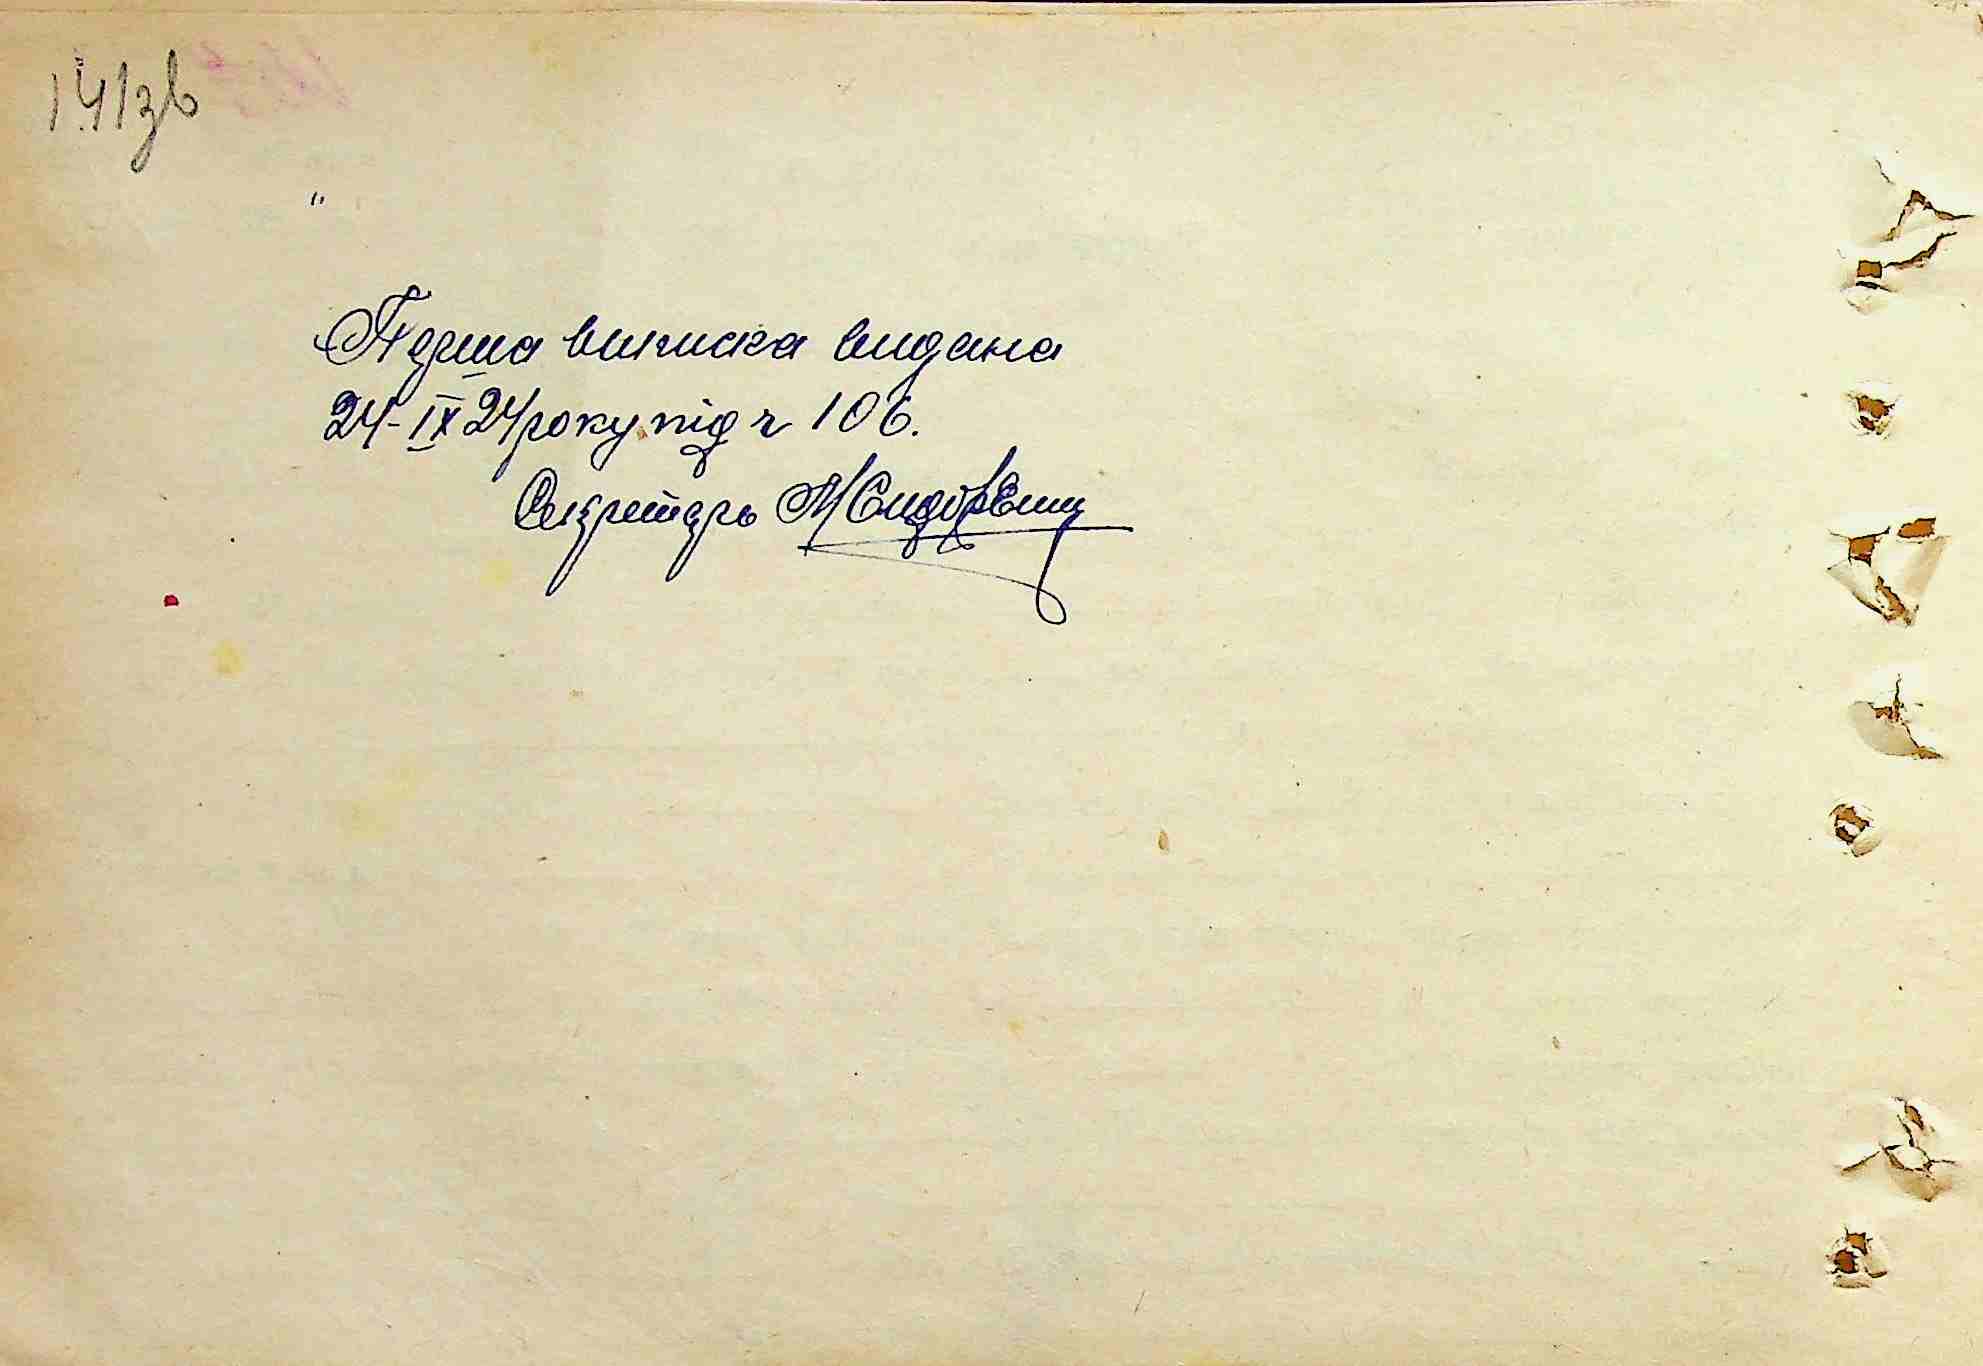 141зв
Перша виписка видана
24-IX 24 року під ч 106.
Секретарь